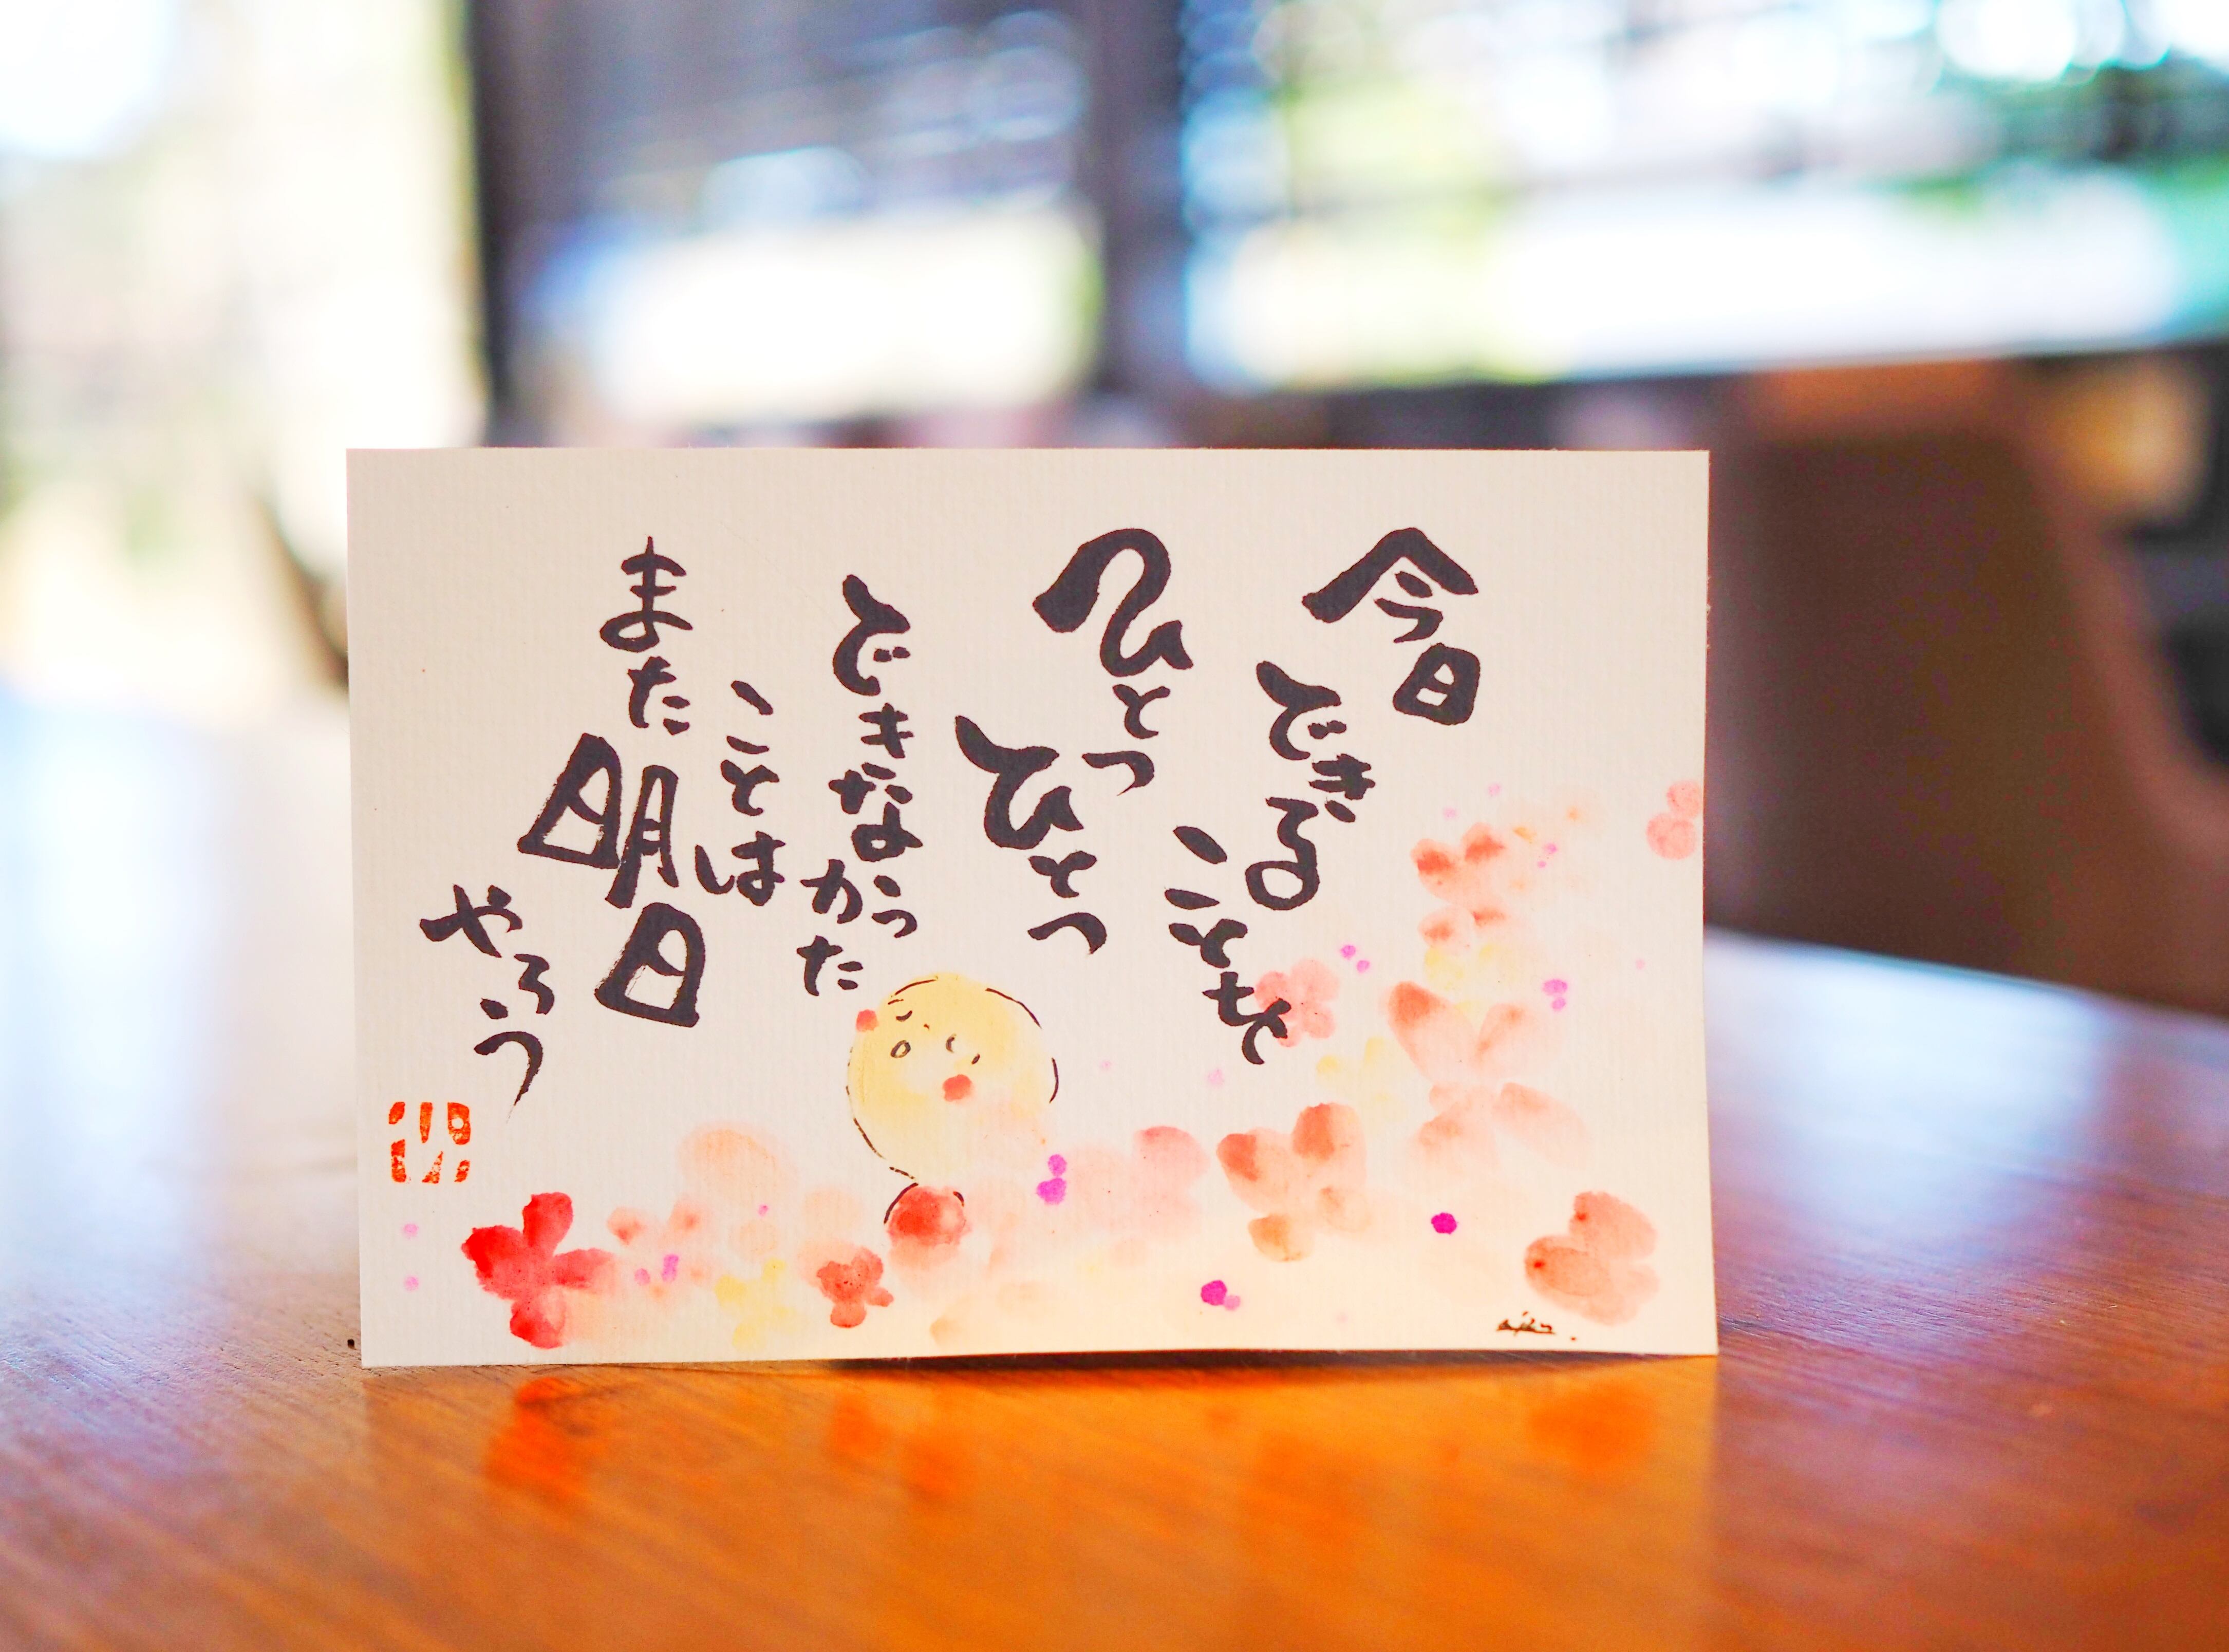 今日
できる
ことを
ひとつ
ひとつ
できなかった
ことは
また明日
やろう